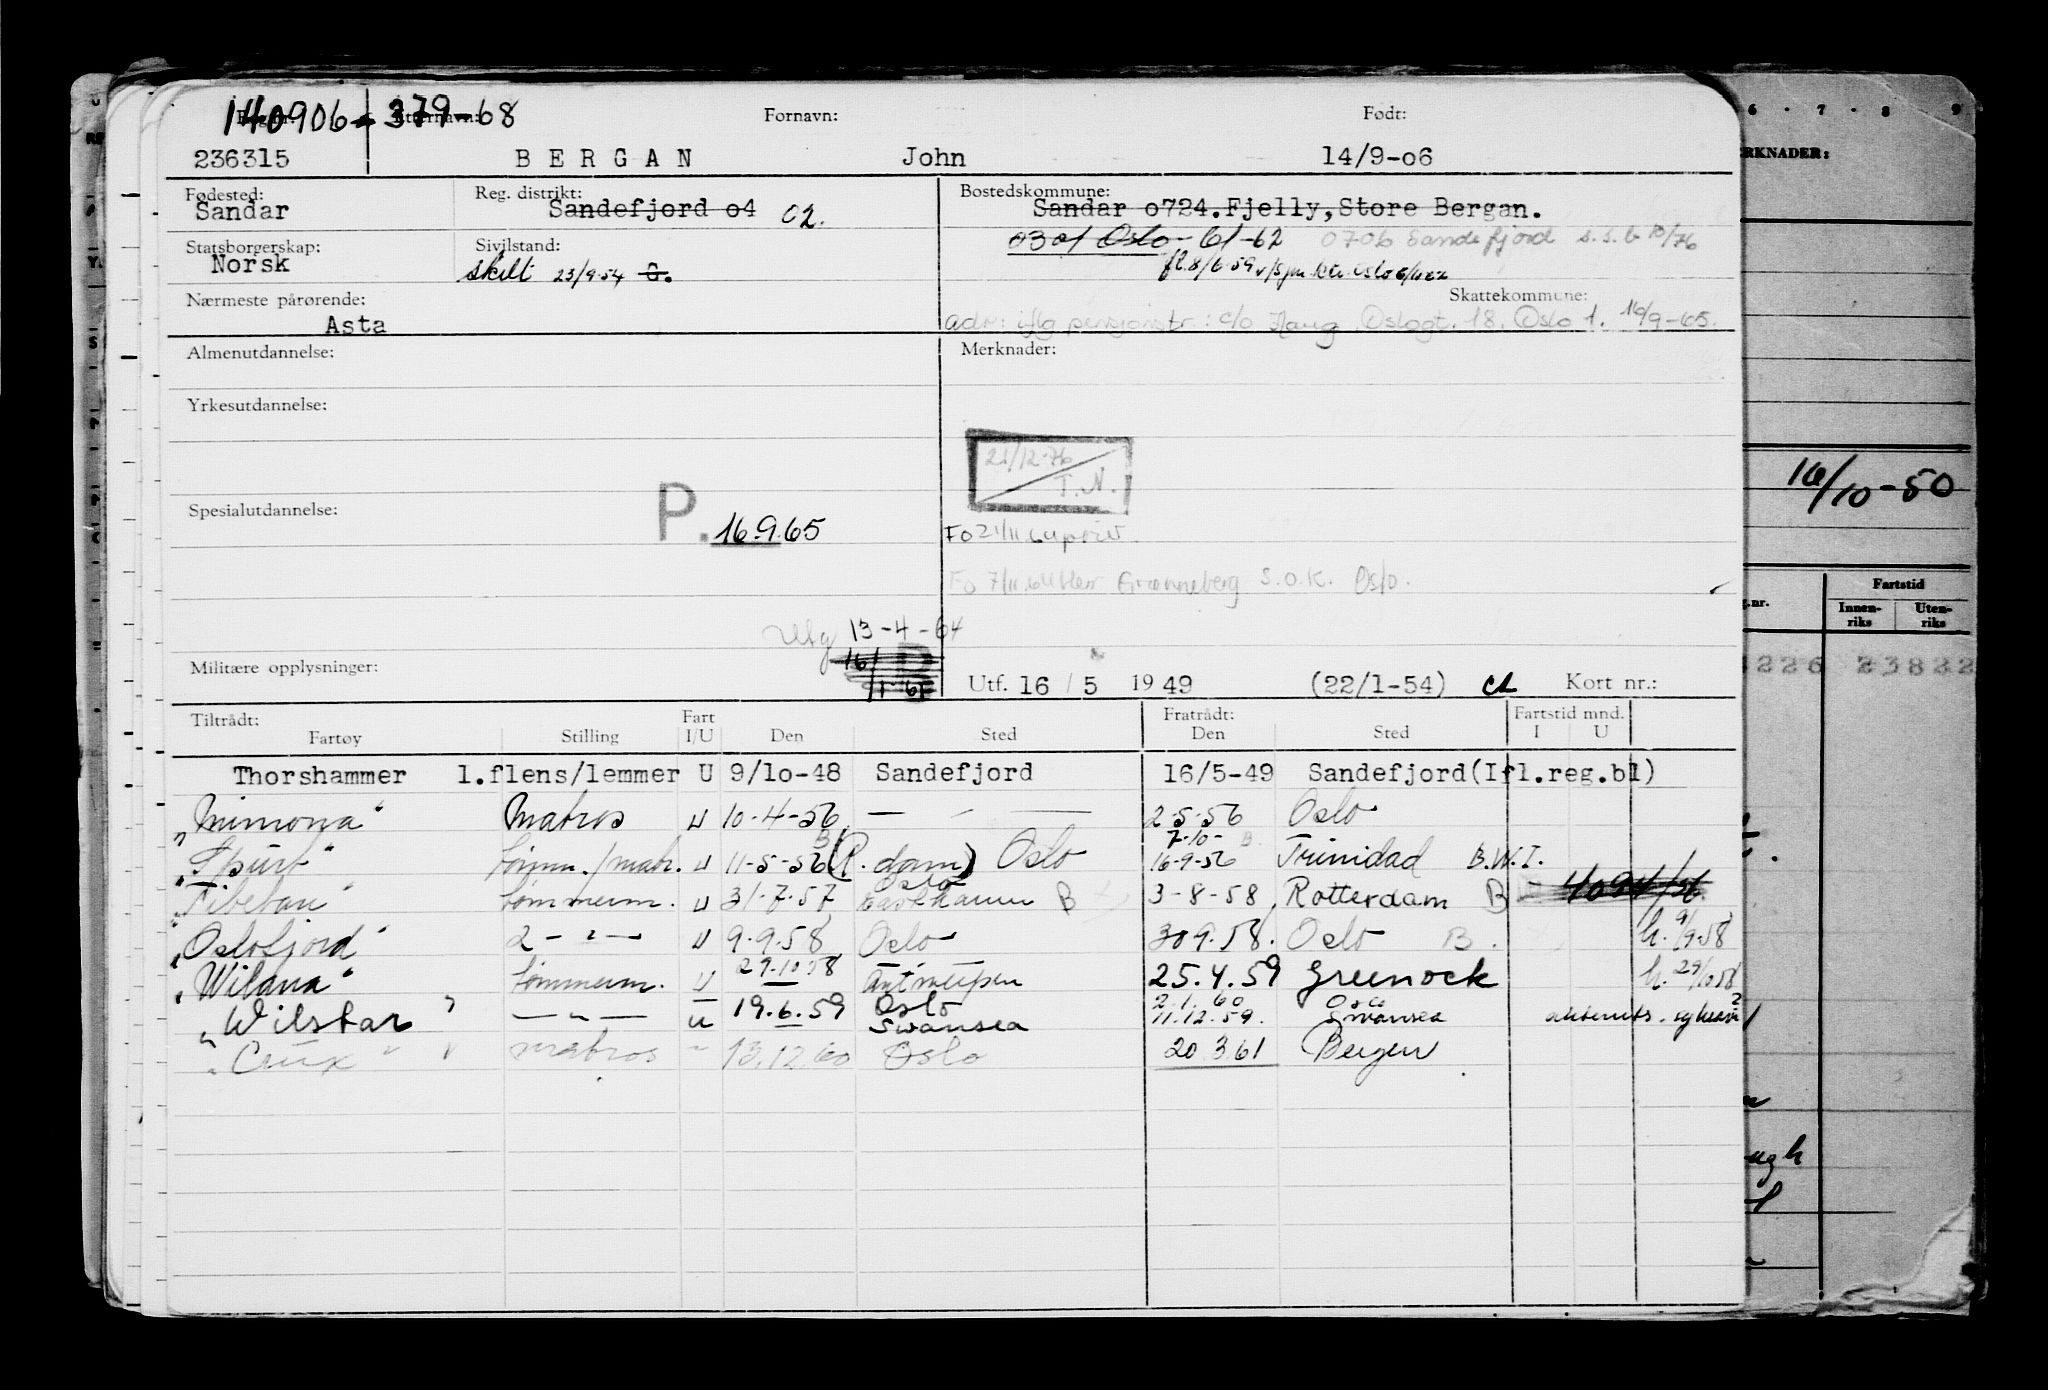 140906 - 379-68
Fornavn: Født:
236315 BERGAN John 14/9-06
Fødested: Reg. distrikt: Bostedskommune:
Sandar Sandefjord o4 02. Sandar o724.Fjelly,Store Bergan.
0301 Oslo - 61-62 0706 Sandefjord
Statsborgerskap: Sivilstand:
Norsk skilt 23/9-54 G.
Nærmeste pårørende: Skattekommune:
Asta adr: iflg pensjonstr: c/o Haug Oslogt. 18, Oslo 1. 16/9-65.
Almenutdannelse: Merknader:
Yrkesutdannelse:
21/12-76
T.N.
Spesialutdannelse: P. 16.9.65
Fo 21/11
Fo 7/11 Grønneberg S.O.K. Oslo.
Utg 13-4-64
Militære opplysninger:
Utf. 16 / 5 1949 (22/1-54) Kort nr.:
Tiltrådt: Fart Fratrådt: Fartstid mnd.
Fartøy Stilling I/U Den Sted Den Sted I U
Thorshammer 1.flens/lemmer U 9/1o-48 Sandefjord 16/5-49 Sandefjord(Ifl.reg.bl)
"Mimona" Matros U 10-4-56 — - — 2-5-56 Oslo
7-10-
"Spurt" tømm./matr. U 11-5-56 (R.dam) Oslo 16-9-56 Trinidad B.W.I.
Oslo
"Tibetan" tømmerm. U 31.7.57 B 3-8-58 Rotterdam B
"Oslofjord" 2 - " - U 9.9.58 Oslo 30 9.58. Oslo B. h. 9/9-58
"Wilana" tømmerm. U 29.10 58 Antwerpen 25.4.59 Greenock h. 29/10 58
"Wilstar" - " - U 19.6.59 Oslo 2.1.60 Oslo
Swansea 11.12.59. Swansea
"Crux" matros - 13.12.60 Oslo 20 3.61 Bergen
6 · 7 · 8 · 9
RKNADER:
16/10-50
g.nr. Fartstid
Innen-
riks Uten-
riks
226 23822